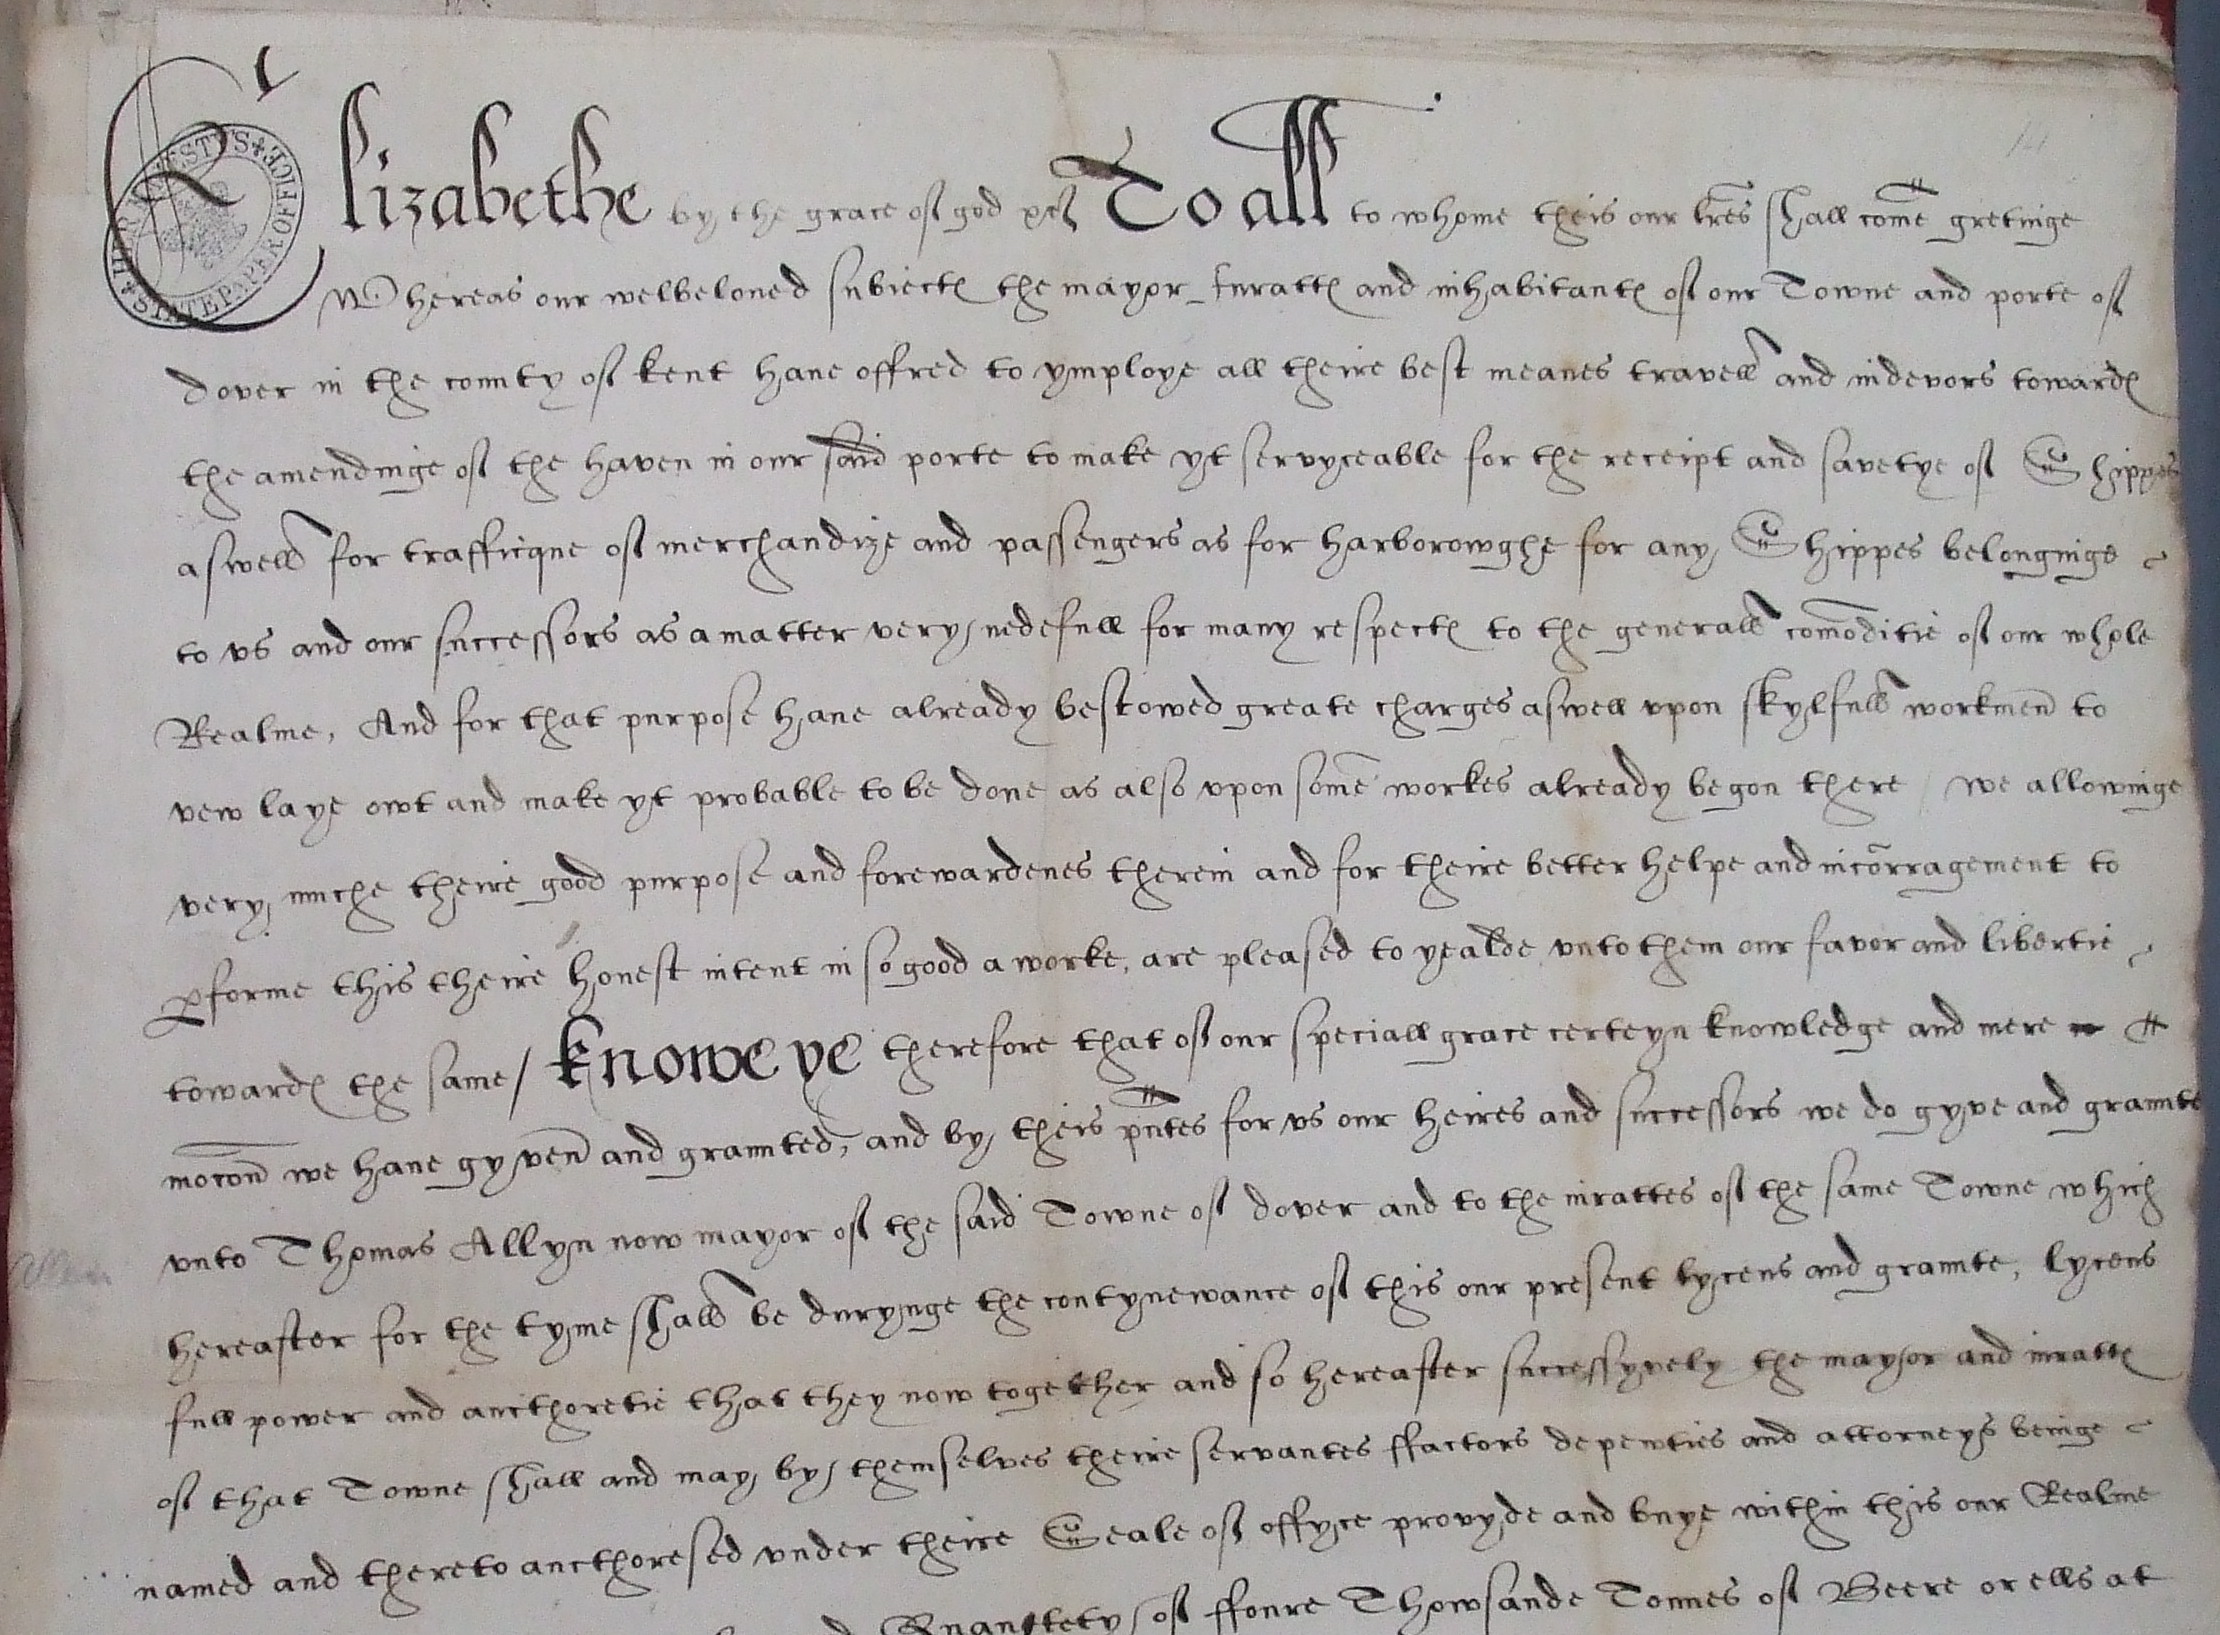 Elizabethe by the grace of god &c To all to whome theis our lr̃es shall comẽ gretinge
Whereas our welbeloued subiectes the mayor Iurattes and inhabitantes of our Towne and porte of
dover in the county of kent haue offred to ymploye all theire best meanes travell and indevors towardes
the amendinge of the haven in our said porte to make yt servyceable for the receipt and savetye of Shippes
aswell for trafficque of merchandize and passengers as for harborowghe for any Shippes belonginge
to vs and our successors as a matter very nedefull for many respectes to the generall com̃oditie of our whole
Realme, And for that purpose haue already bestowed greate charges aswell vpon skylfull workmen to
vew laye owt and make yt probable to be done as also vpon somẽ workes already begon there / we allowinge
very muche theire good purpose and forewardenes therein and for theire better helpe and incõrragement to
ꝑforme this theire honest intent in so good a worke, are pleased to yealde vnto them our favor and libertie
towardes the same / knowe ye therefore that of our speciall grace certeyn knowledge and mere
moc̃on we haue gyven and graunted, and by theis p̃ntes for vs our heires and successors we do gyve and graunte
vnto Thomas Allyn now mayor of the said Towne of dover and to the iurattes of the same Towne which
hereafter for the tyme shall be durynge the contynewance of this our present lycens and graunte, lycens
full power and aucthoretie that they now together and so hereafter successyvely the mayor and iurattes
of that Towne shall and may by themselves theire servantes ffactors depewties and attorneys beinge
named and thereto aucthoresed vnder theire Seale of offyce provyde and buye within this our Realme
Quantitety of ffoure Thowsande Tonnes of Beere or ells at
HER MAJESTY'S STATE PAPER OFFICE